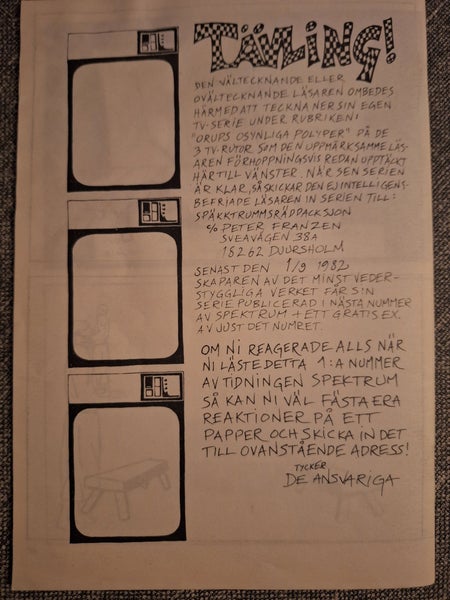 TÄVLING!
DEN VÄLTECKNANDE ELLER
OVÄLTECKNANDE LÄSAREN OMBEDES
HÄRMED ATT TECKNA NER SIN EGEN
TV-SERIE UNDER RUBRIKEN:
"ORUPS OSYNLIGA POLYPER" PÅ DE
3 TV-RUTOR SOM DEN UPPMÄRKSAMME LÄS-
AREN FÖRHOPPNINGSVIS REDAN UPPTÄCKT
HÄR TILL VÄNSTER. NÄR SEN SERIEN
ÄR KLAR, SÅ SKICKAR DEN EJ INTELLIGENS-
BEFRIADE LÄSAREN IN SERIEN TILL:
SPÄKKTRUMMSRÄDPACKSJON
c/o PETER FRANZEN
SVEAVÄGEN 38A
18262 DJURSHOLM
SENAST DEN 1/9 1982
SKAPAREN AV DET MINST VEDER-
STYGGLIGA VERKET FÅR SIN
SERIE PUBLICERAD I NÄSTA NUMMER
AV SPEKTRUM + ETT GRATIS EX.
AV JUST DET NUMRET.
OM NI REAGERADE ALLS NÄR
NI LÄSTE DETTA 1:A NUMMER
AV TIDNINGEN SPEKTRUM
SÅ KAN NI VÄL FÄSTA ERA
REAKTIONER PÅ ETT
PAPPER OCH SKICKA IN DET
TILL OVANSTÅENDE ADRESS!
TYCKER
DE ANSVARIGA